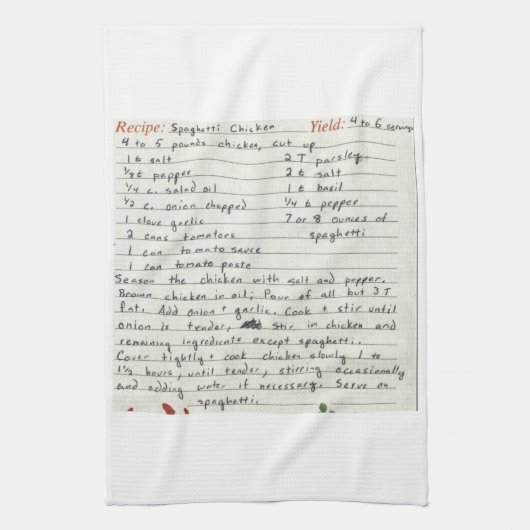 Recipe: Spaghetti Chicken Yield: 4 to 6 servings
4 to 5 pounds chicken, cut up
1 t salt 2 T parsley
1/8 t pepper 2 t salt
1/4 c. salad oil 1 t basil
1/2 c. onion chopped 1/4 t pepper
1 clove garlic 7 or 8 ounces of
2 cans tomatoes spaghetti
1 can tomato sauce
1 can tomato paste
Season the chicken with salt and pepper.
Brown chicken in oil; Pour of all but 3 T
fat. Add onion + garlic. Cook + stir until
onion is tender, Stir in chicken and
remaining ingredients except spaghetti.
Cover tightly + cook chicken slowly 1 to
1 1/2 hours, until tender, stirring occasionally
and adding water if necessary. Serve on
spaghetti.